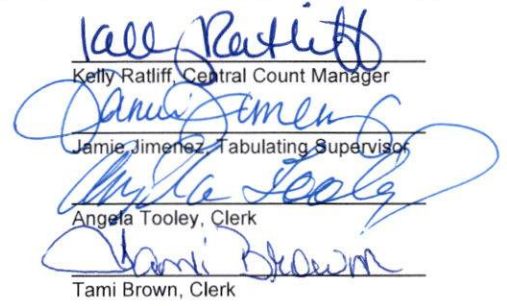 Kelly Ratliff
Kelly Ratliff, Central Count Manager
Jamie Jimenez
Jamie Jimenez, Tabulating Supervisor
Angela Tooley
Angela Tooley, Clerk
Tami Brown
Tami Brown, Clerk